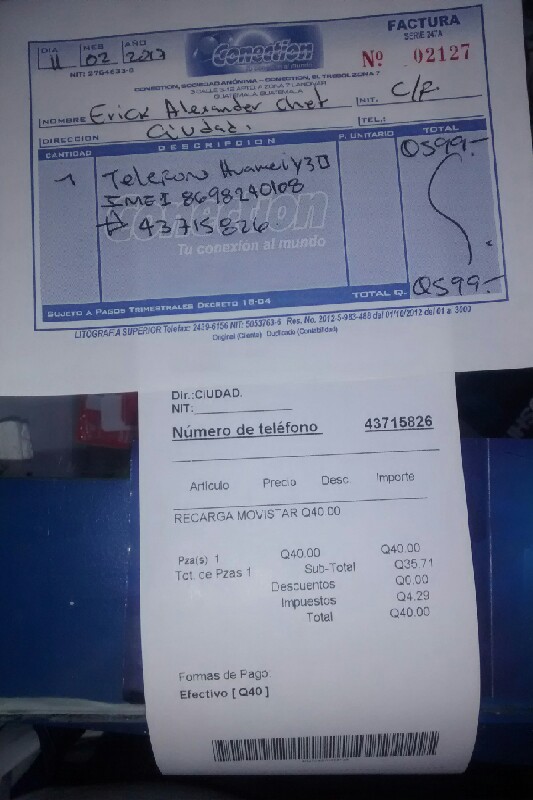 FACTURA
SERIE "A"
DIA MES AÑO
11 02 2017
Conection
Nº 02127
CONECTION, SOCIEDAD ANÓNIMA - CONECTION, EL TREBOL ZONA 7
GUATEMALA, GUATEMALA
NOMBRE Erick Alexander NIT. C/F.
DIRECCION Ciudad. TEL.:
CANTIDAD DESCRIPCION P. UNITARIO TOTAL
1 Telefono Huawei Y3II Q599.-
IMEI 8698240108
# 43715826
conection
Tu conexión al mundo
TOTAL Q. Q599.-
SUJETO A PAGOS TRIMESTRALES DECRETO 18-04
LITOGRAFIA SUPERIOR Telefax: 2439-6156 NIT: 5053763-6 Res. No. 2012-5-953-488 del 01/10/2012 del 01 a 3000
Original (Cliente) Duplicado (Contabilidad)
Dir.:CIUDAD.
NIT:
Número de teléfono 43715826
Articulo Precio Desc. Importe
RECARGA MOVISTAR Q40.00
Pza(s) 1 Q40.00 Q40.00
Tot. de Pzas 1 Sub-Total Q35.71
Descuentos Q0.00
Impuestos Q4.29
Total Q40.00
Formas de Pago:
Efectivo [ Q40 ]